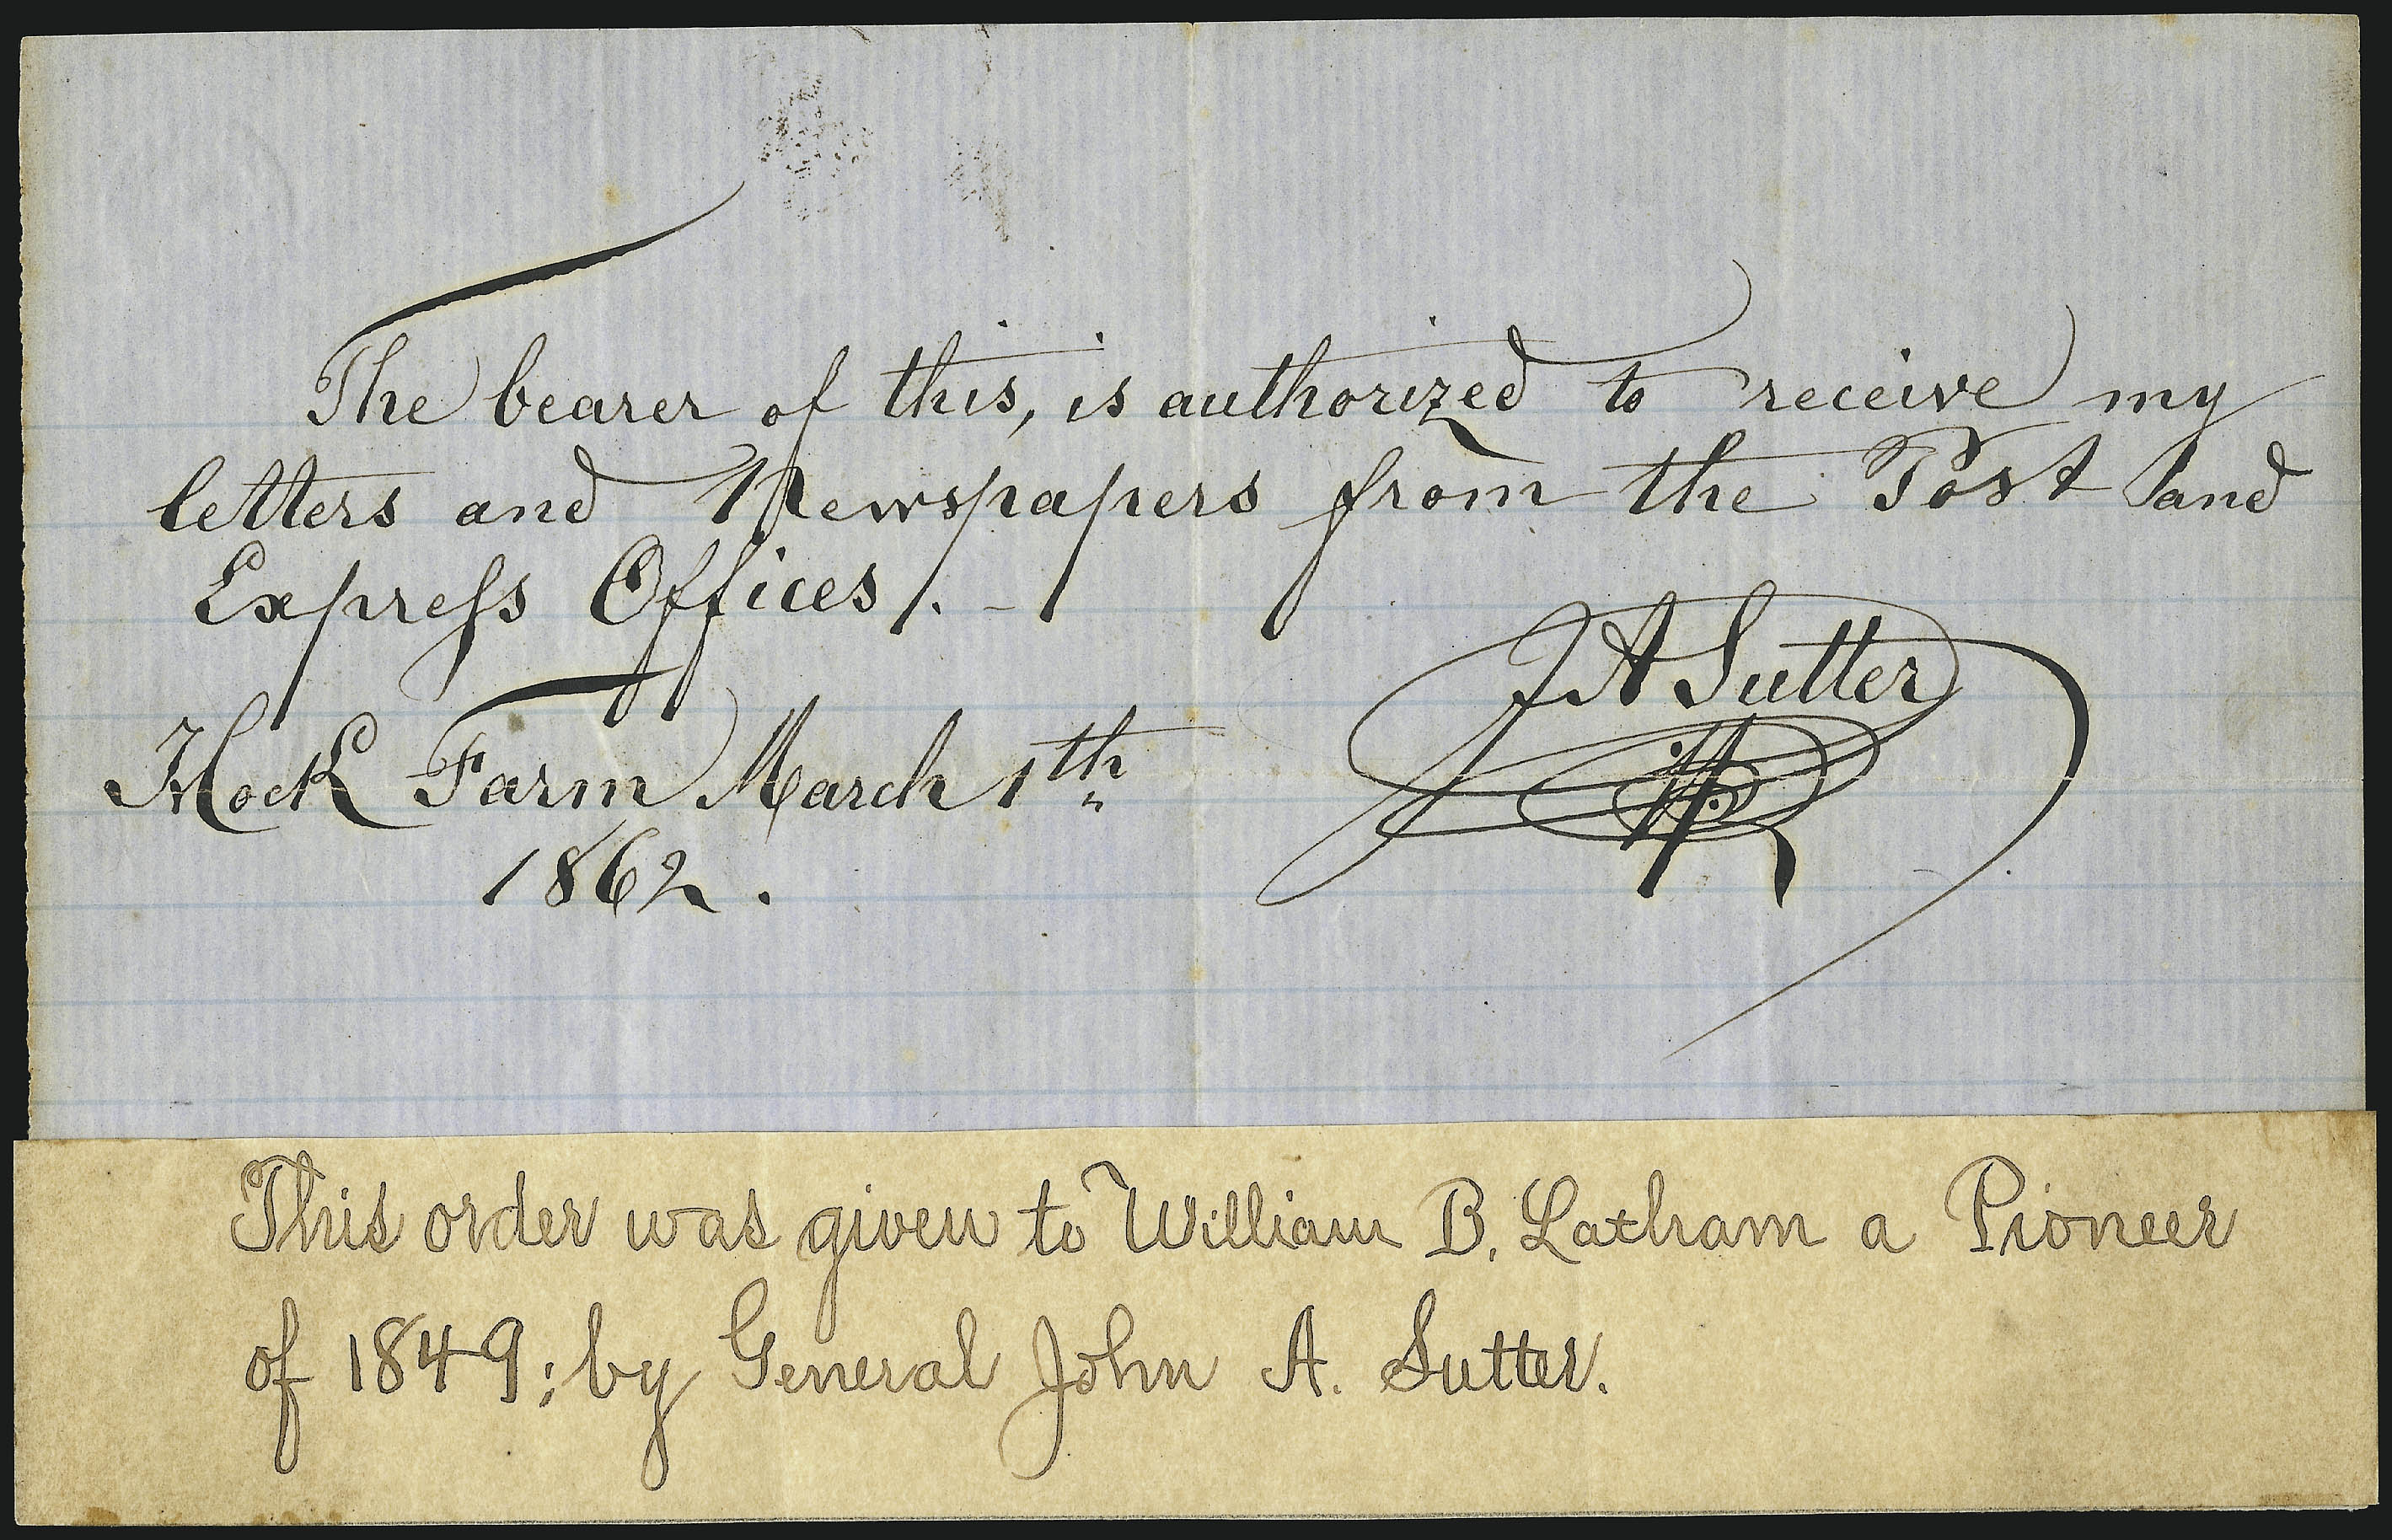 The bearer of this, is authorized to receive my
letters and Newspapers from the Post and
Express Offices. -
J A Sutter
Hock Farm March 1th
1862.
This order was given to William B. Latham a Pioneer
of 1849; by General John A. Sutter.